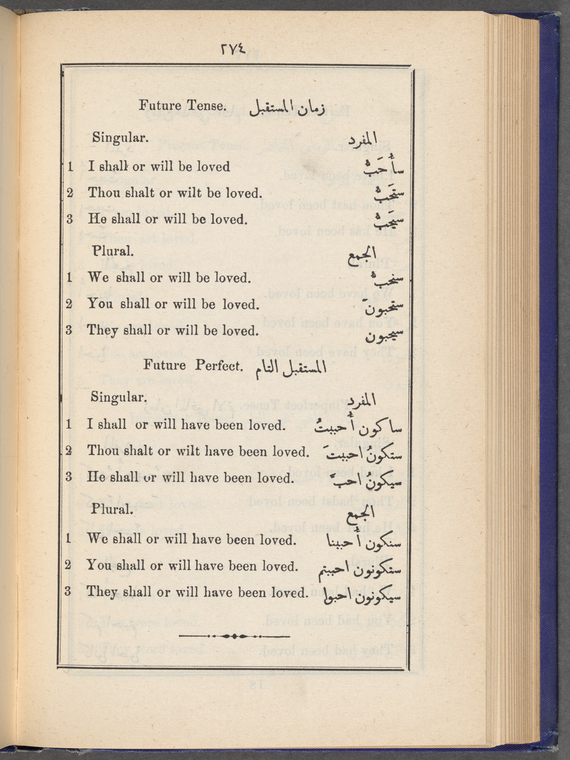 ٢٧٤
Future Tense. زمان المستقبل
Singular. المفرد
1 I shall or will be loved سأُحَبُّ
2 Thou shalt or wilt be loved. ستُحَبُّ
3 He shall or will be loved. سيُحَبُّ
Plural. الجمع
1 We shall or will be loved. سنحبُّ
2 You shall or will be loved. ستحبونَ
3 They shall or will be loved. سيحبون
Future Perfect. المستقبل التام
Singular. المفرد
1 I shall or will have been loved. ساكون أُحببتُ
2 Thou shalt or wilt have been loved. ستكونُ احببتَ
3 He shall or will have been loved. سيكونُ احبَّ
Plural. الجمع
1 We shall or will have been loved. سنكون أُحببنا
2 You shall or will have been loved. ستكونون احببتم
3 They shall or will have been loved. سيكونون احبوا